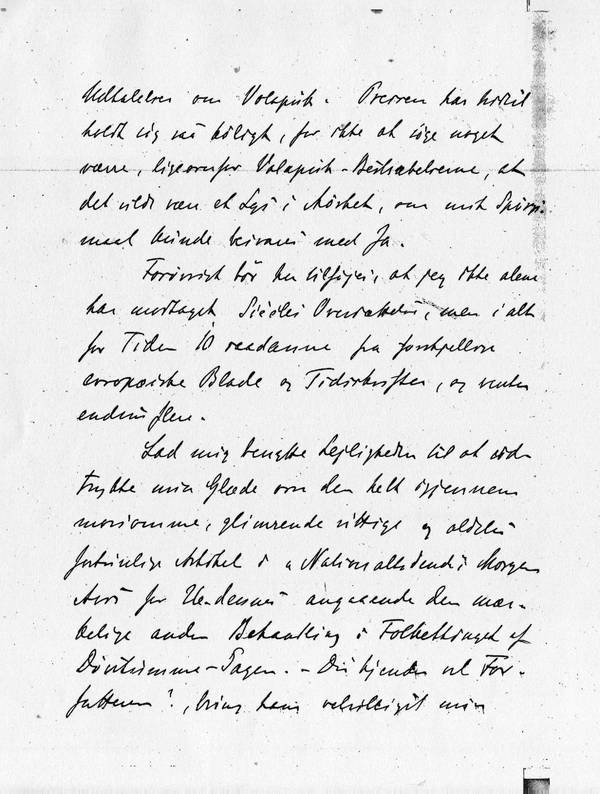 Udtalelser om Volapük. Pressen har hidtil
holdt sig saa køligt, for ikke at sige noget
værre, ligeoverfor Volapük-Bestræbelserne, at
det vilde være et Lys i Mørket, om mit Spørgs-
maal kunde besvares med Ja.
Forøvrigt bør her tilføjes, at jeg ikke alene
har modtaget Oversættelse, men i alt
for Tiden 10 saadanne fra forskjellige
europæiske Blade og Tidsskrifter, og venter
endnu flere.
Lad mig benytte Lejligheden til at ud-
trykke min Glæde over den helt igjennem
morsomme, glimrende vittige og aldeles
Artikel i "Nationaltidende"s Morgen
Avis for angaaende den mær-
kelige anden Behandling i Folkethinget af
Døvstumme-Sagen. - De kjender vel For-
fatteren?, bring ham velvilligst min